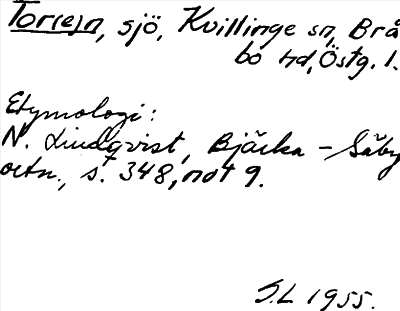 Torrejn, sjö, Kvillinge sn, Brå
bo hd, Östg. l.
Etymologi:
N. Lindqvist, Bjärka - Säby
ortn., s. 348, not 9.
S.L 1955.